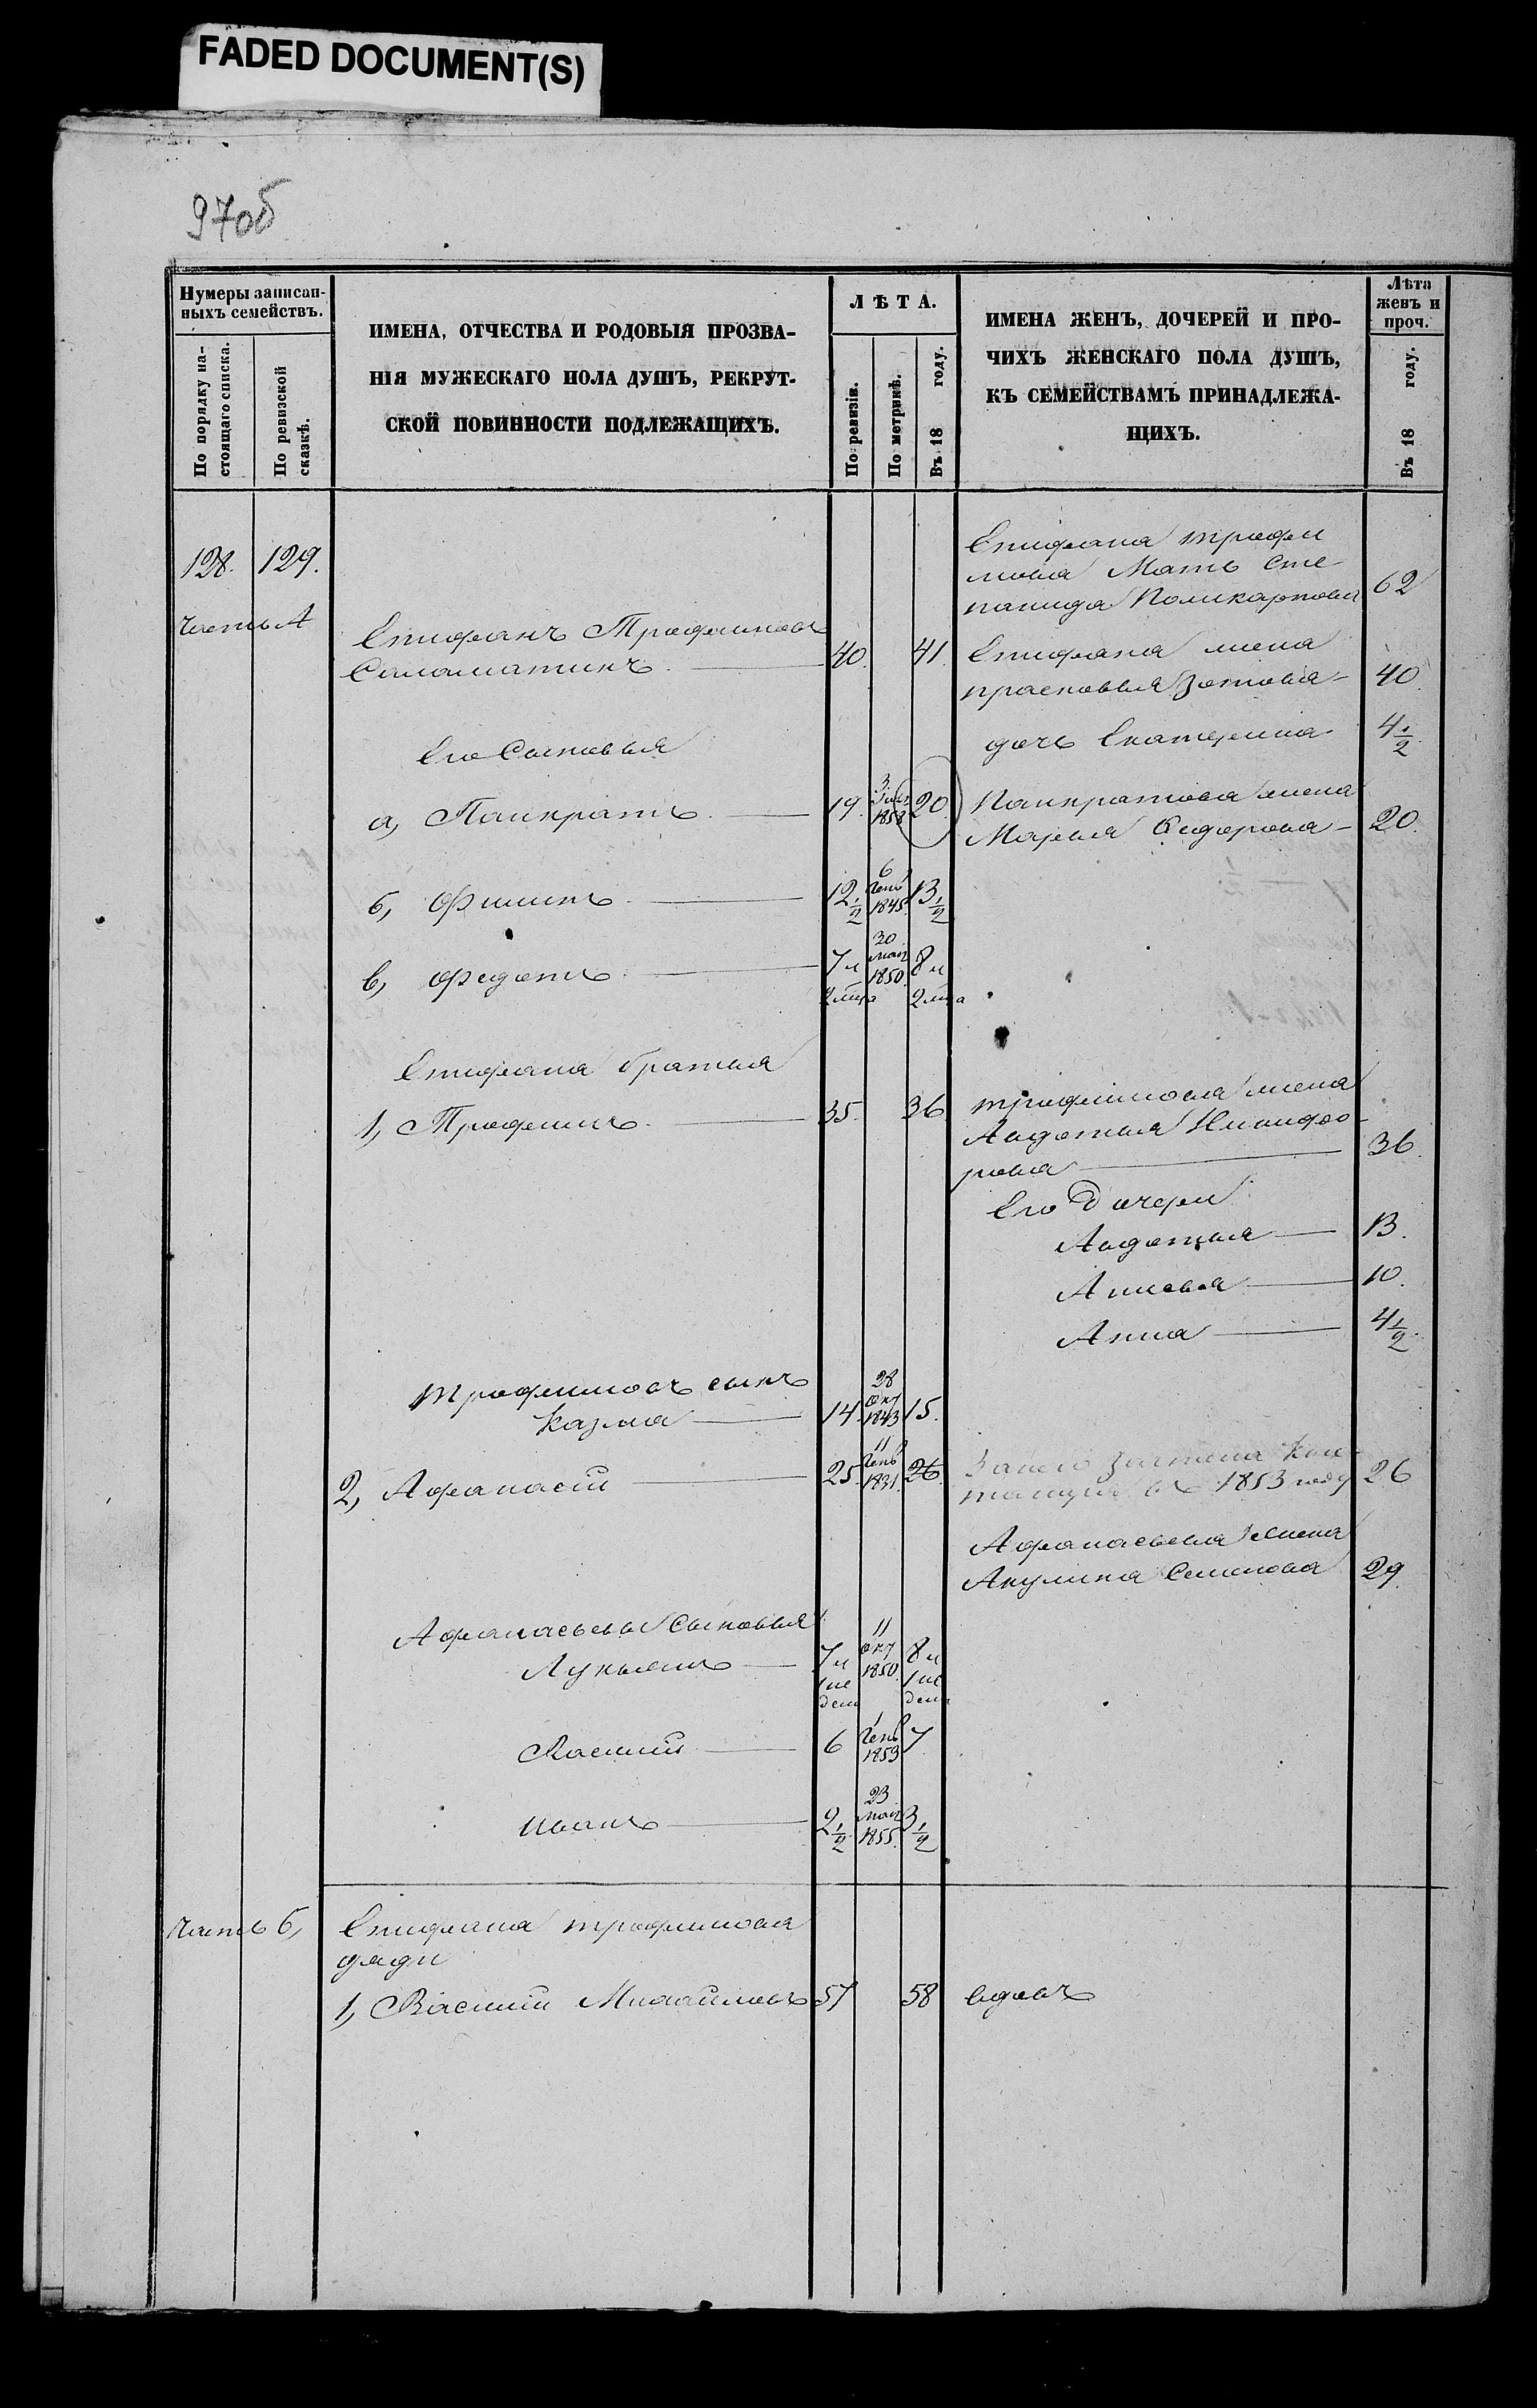 FADED DOCUMENT(S)
97об
Нумеры записан-
ныхъ семействъ.
По порядку на-
стоящаго списка.
По ревизской
сказкѣ.
ИМЕНА, ОТЧЕСТВА И РОДОВЫЯ ПРОЗВА-
НІЯ МУЖЕСКАГО ПОЛА ДУШЪ, РЕКРУТ-
СКОЙ ПОВИННОСТИ ПОДЛЕЖАЩИХЪ.
ЛѢТА.
По ревизіи.
По метрикѣ.
Въ 18 году.
ИМЕНА ЖЕНЪ, ДОЧЕРЕЙ И ПРО-
ЧИХЪ ЖЕНСКАГО ПОЛА ДУШЪ,
КЪ СЕМЕЙСТВАМЪ ПРИНАДЛЕЖА-
ЩИХЪ.
Лѣта
женъ и
проч.
Въ 18 году.
128. 129.
Епифана трофи
мова Мать Сте
панида Поликарпова 62
часть А
Епифанъ Трофимовъ
Саламатинъ 40. 41.
Епифана жена
прасковья Зотова 40
Его Сыновья
дочь Екатерина 4 1/2
а, Панкратъ 19. 3 1858 20.
Панкратова жена
Марья Сидорова 20.
б, Филипъ 12 1/2 6 Генв 1845 13 1/2
в, Федотъ 7 л 2 мца 30 мая 1850 8 л 2 мца
Епифана братья
1, Трофимъ 35. 36
трофимова жена
Авдотья Никифо-
рова 36.
Его Дочери
Авдотья 13.
Анисья 10.
Анна 4 1/2
трофимовъ сынъ
Казма 14. 28 окт 1843 15.
2, Афанасій 25. 11 Генв 1831. 26.
За него зачтена Кви
танция въ 1853 году 26
Афанасьева жена
Акулина Семенова 29.
Афанасьевы Сыновья
Лукьянъ 7 л 1 не дели 11 окт 1850 8 л 1 не дели
Василий 6 1 Генв 1853 7
иванъ 2 1/2 23 мая 1855. 3 1/2
часть б,
Епифана трофимова
дяди
1, Василий Михайловъ 57 58 вдовъ